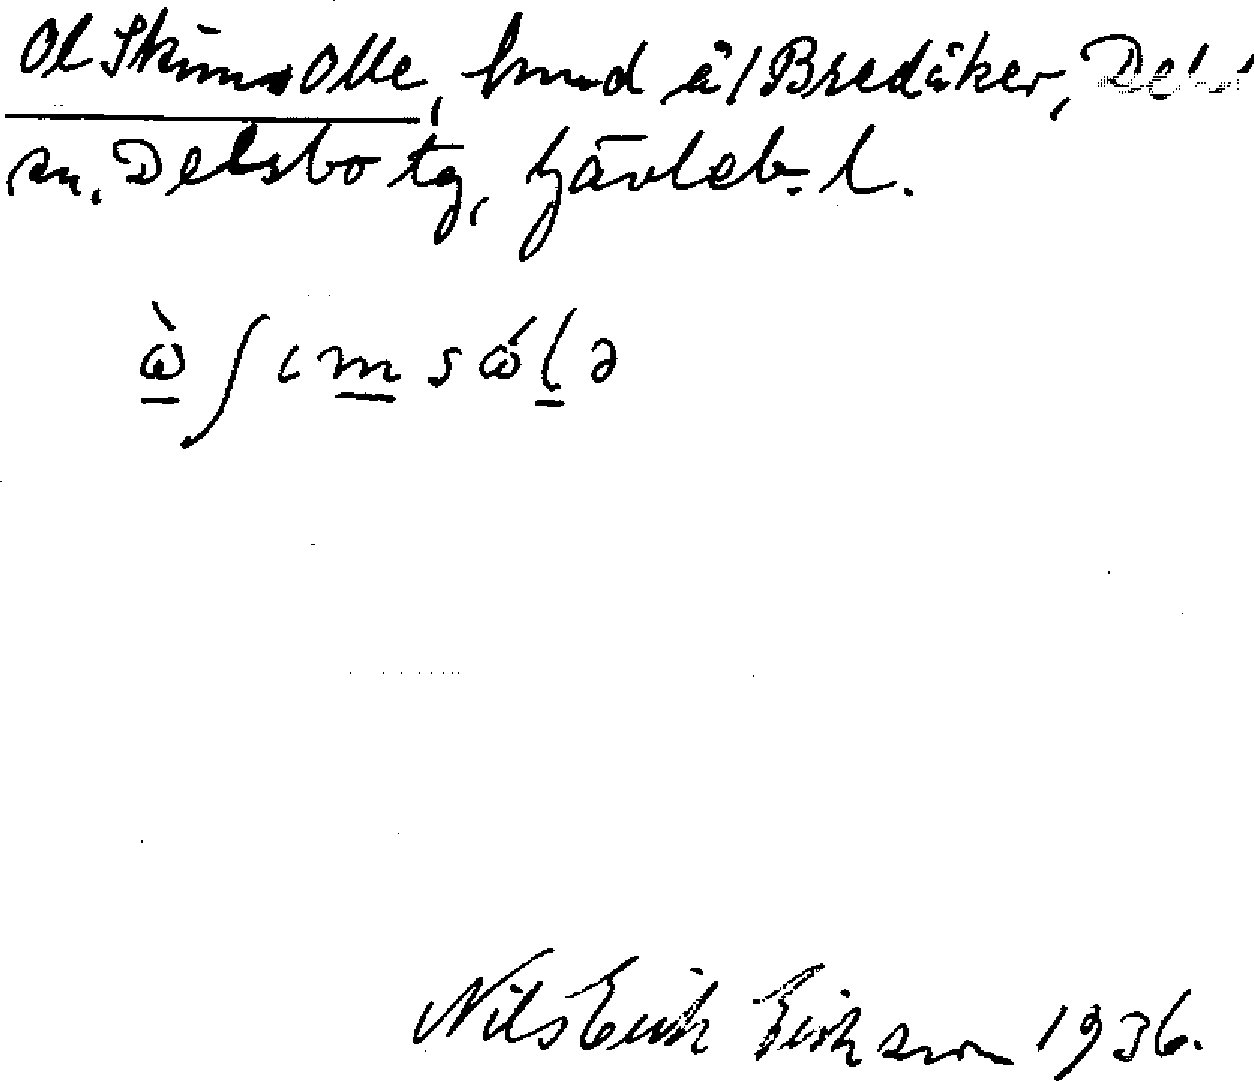 Ol Skims Olle, bund. å / Bredåker, Delsbo
sn, Delsbo tg, Gävleb. l.
ὼ ʃ ɩ m s ώ l ə
Nils Erik Erikson 1936.